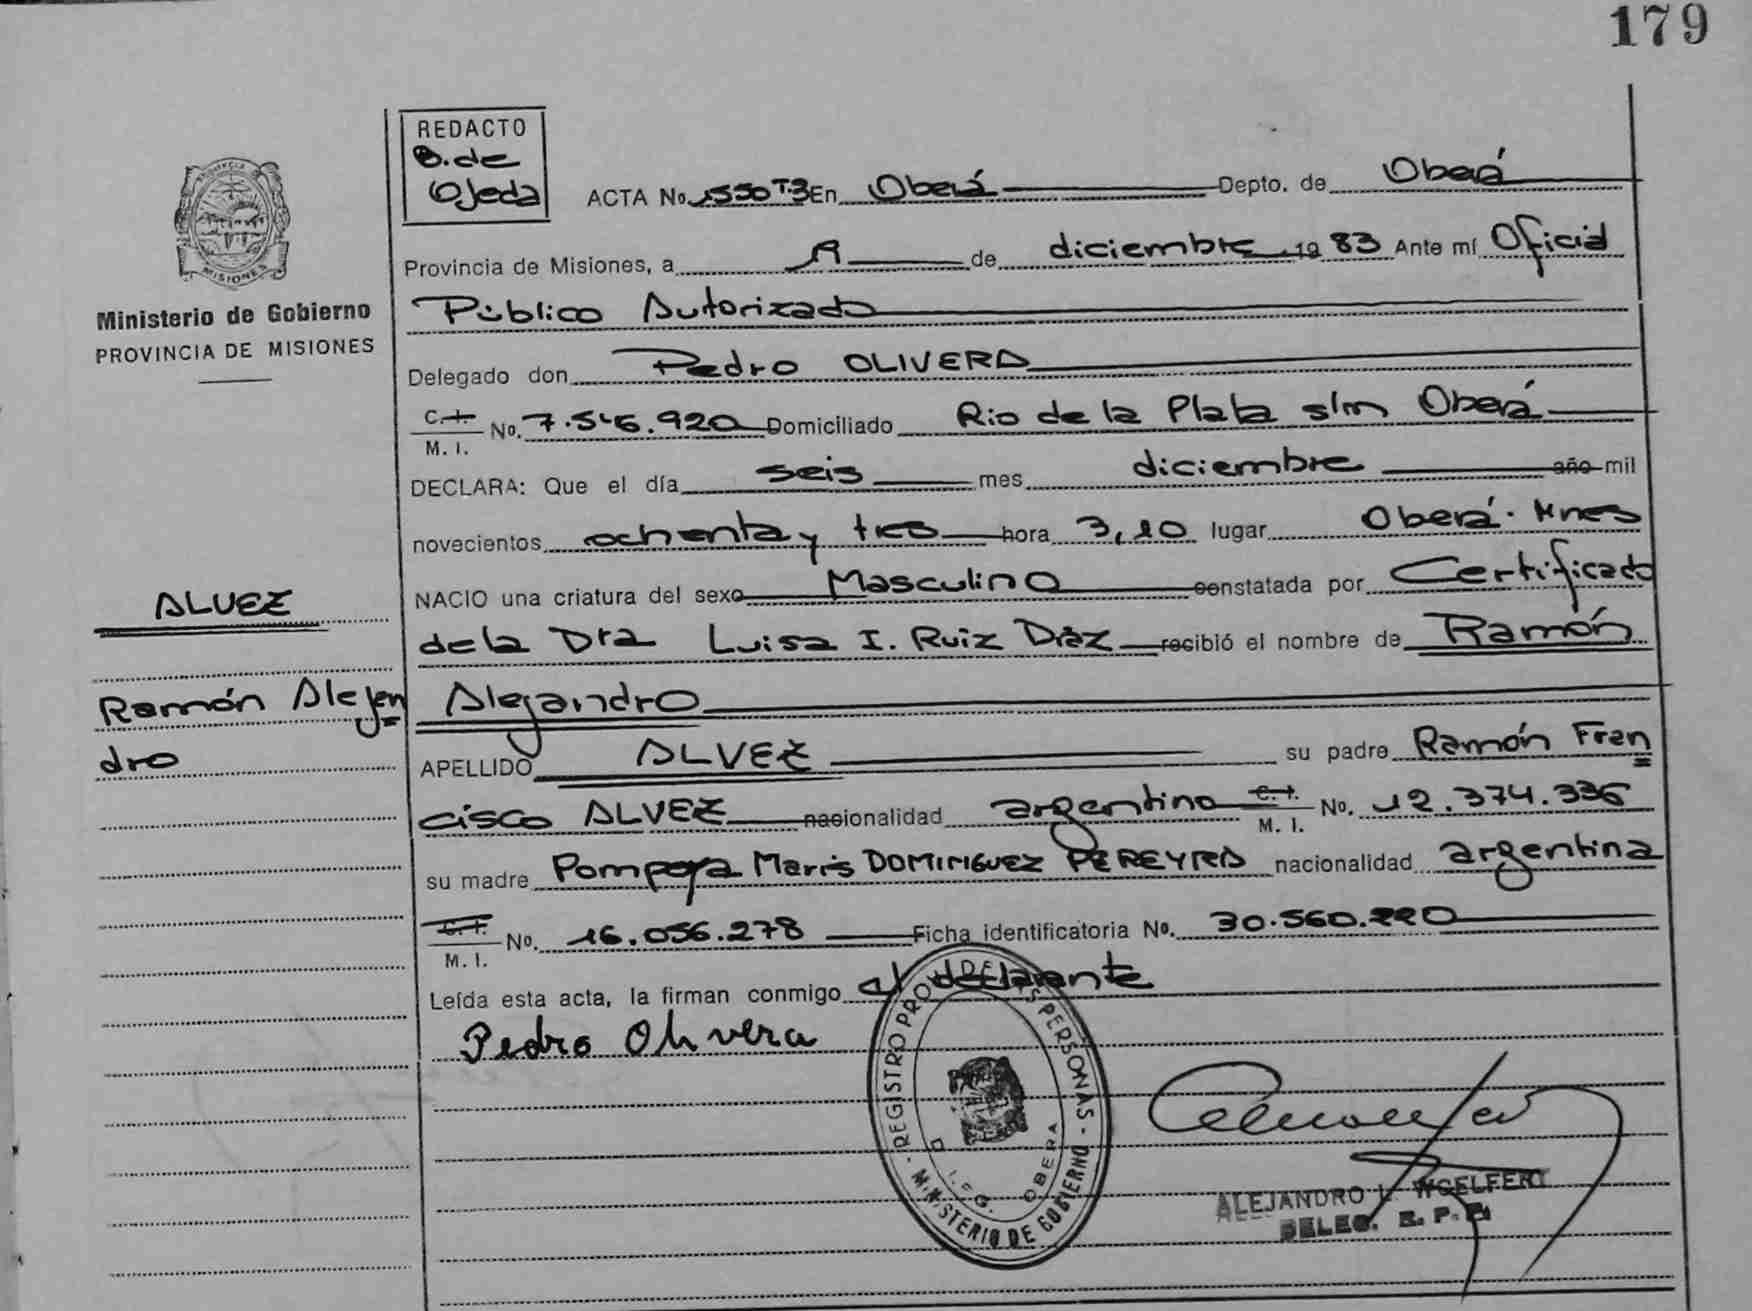 179
REDACTO
B. de
Ojeda
ACTA No. 1550 T-3 En Oberá Depto. de Oberá
Provincia de Misiones, a de diciembre 19 83 Ante mí Oficial
Público Autorizado
Ministerio de Gobierno
PROVINCIA DE MISIONES
Delegado don Pedro OLIVERA
C. I. No. 7.546.920 Domiciliado Rio de la Plata s/n Oberá
M. I.
DECLARA: Que el día seis mes diciembre año mil
novecientos ochenta y tres hora 3,10 lugar Oberá. Mnes
NACIO una criatura del sexo Masculino constatada por Certificado
de la Dra Luisa I. Ruiz Díaz recibió el nombre de Ramón
Alejandro
ALVEZ
Ramón Alejan
dro
APELLIDO ALVEZ su padre Ramón Fran
cisco ALVEZ nacionalidad argentino C. I. No. 12.374.336
M. I.
su madre Pompeya Maris DOMINGUEZ PEREYRA nacionalidad argentina
C. I. No. 16.056.278 Ficha identificatoria No. 30.560.220
M. I.
Leída esta acta, la firman conmigo el declarante
Pedro Olivera
REGISTRO PROV. DE LAS PERSONAS - MINISTERIO DE GOBIERNO
DELEG. OBERA
ALEJANDRO L. WOELFERT
DELEG. R. P. P.